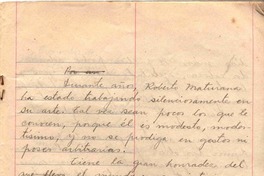 Por un
Durante años, Roberto Maturana
ha estado trabajando silenciosamente en
su arte. Tal vez sean pocos los que le
conocen, porque él es modesto, modes-
tísimo, y no se prodiga en gestos ni
poses arbitrarias.
Tiene la gran honradez del